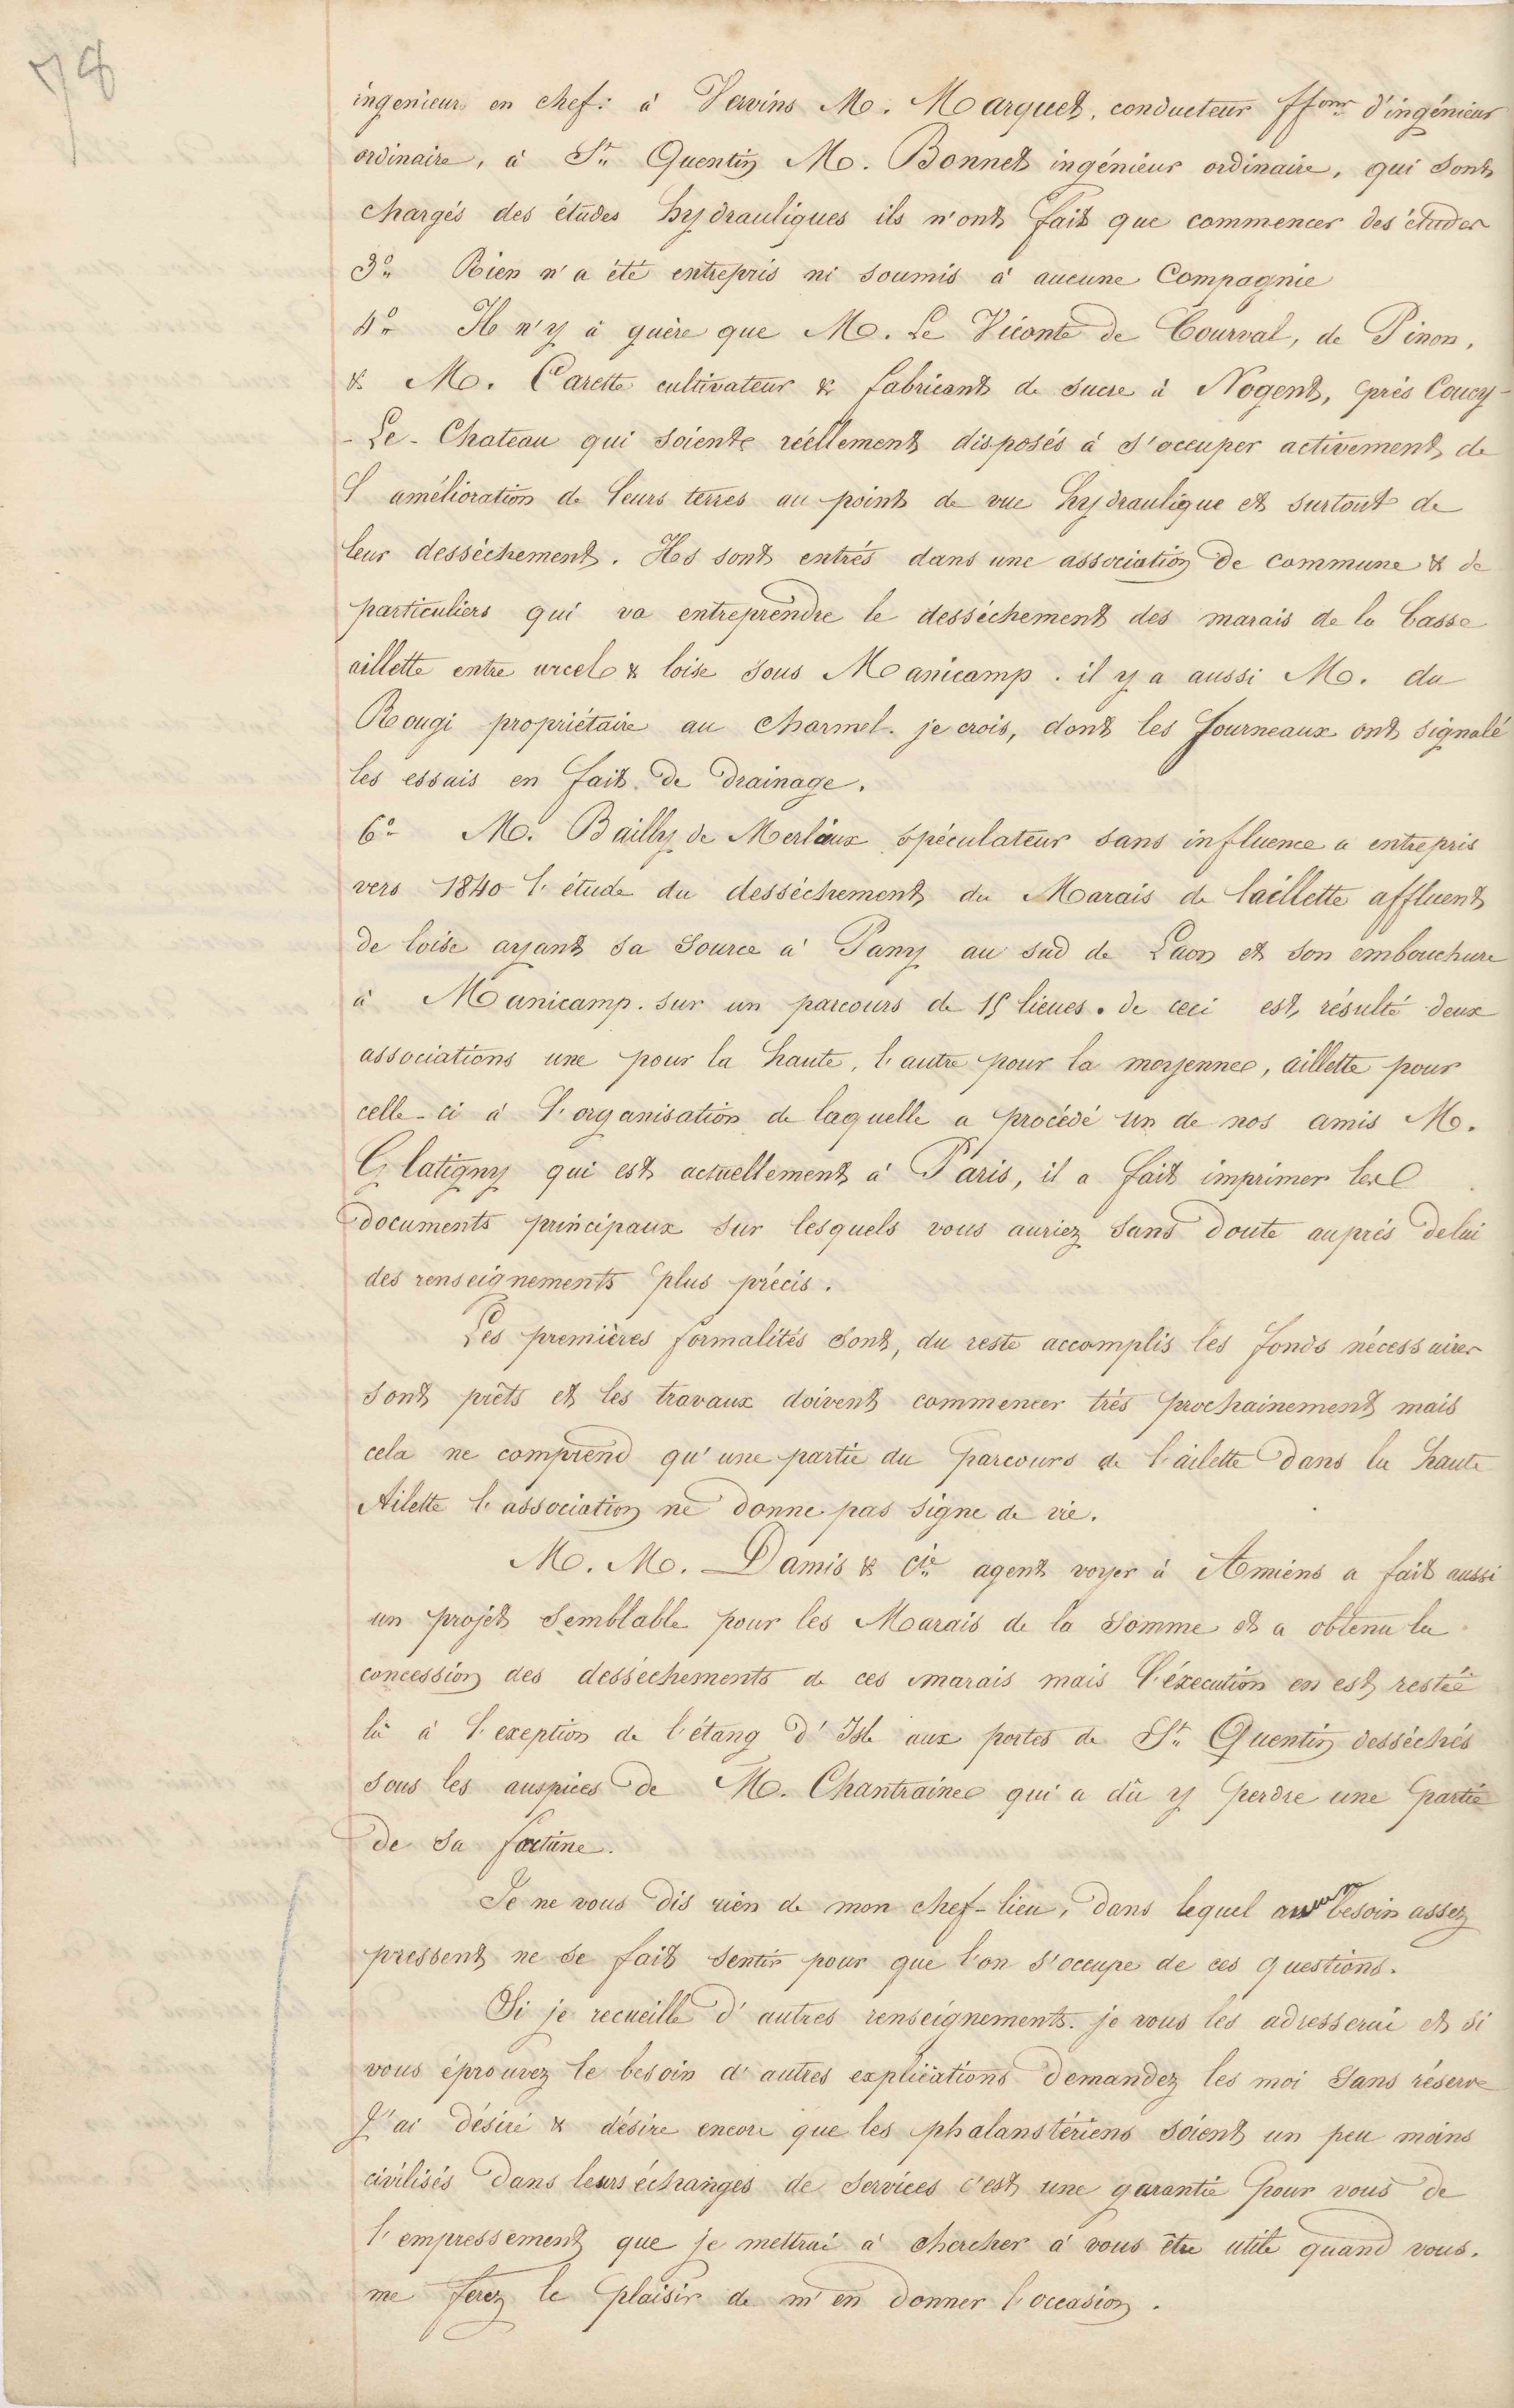 78
ingenieur en chef: à Vervins M. Marquet, conducteur ffons d'ingénieur
ordinaire, à St. Quentin M. Bonnet ingénieur ordinaire, qui sont
chargés des études hydrauliques ils n'ont fait que commencer des études
3° Rien n'a été entrepris ni soumis à aucune Compagnie
4° Il n'y à guère que M. Le Viconte de Courval, de Pinon,
& M. Carette cultivateur & fabricant de sucre à Nogent, près Coucy-
-Le-Chateau qui soient réellement disposés à s'occuper activement de
l'amélioration de leurs terres au point de vue hydraulique et surtout de
leur dessèchement. Ils sont entrés dans une association de commune & de
particuliers qui va entreprendre le dessèchement des marais de la basse
aillette entre urcel & loise sous Manicamp. il y a aussi M. du
Rougi propriétaire au Charmel. je crois, dont les Journeaux ont signalé
les essais en fait de drainage.
6° M. Bailly de Merlieux spéculateur sans influence a entrepris
vers 1840 l'étude du dessèchement du Marais de laillette affluent
de loise ayant sa source à Pany au sud de Laon et son embouchure
à Manicamp. sur un parcours de 15 lieues. de ceci est résulté deux
associations une pour la haute, l'autre pour la moyenne, aillette pour
celle-ci à l'organisation de laquelle a procédé un de nos amis M.
Glatigny qui est actuellement à Paris, il a fait imprimer les
documents principaux sur lesquels vous auriez sans doute auprès de lui
des renseignements plus précis.
Les premières formalités sont, du reste accomplis les fonds nécessaires
sont prêts et les travaux doivent commencer très prochainement mais
cela ne comprend qu'une partie du parcours de l'ailette dans la haute
Ailette l'association ne donne pas signe de vie.
M. M. Damis & Cie agent voyer à Amiens a fait aussi
un projet semblable pour les Marais de la Somme et a obtenu la
concession des dessèchements de ces marais mais l'éxecution en est restée
là à l'exeption de l'étang d'Isle aux portes de St. Quentin desséchés
sous les auspices de M. Chantraine qui a dû y perdre une partie
de sa fortune.
Je ne vous dis rien de mon chef-lieu, dans lequel aucun besoin assez
pressent ne se fait sentir pour que l'on s'occupe de ces questions.
Si je recueille d'autres renseignements. je vous les adresserai et si
vous éprouvez le besoin d'autres explications demandez les moi sans réserve
J'ai désiré & désire encore que les phalanstériens soient un peu moins
civilisés dans leurs échanges de services c'est une garantie pour vous de
l'empressement que je mettrai à chercher à vous être utile quand vous.
me ferez le plaisir de m'en donner l'occasion.